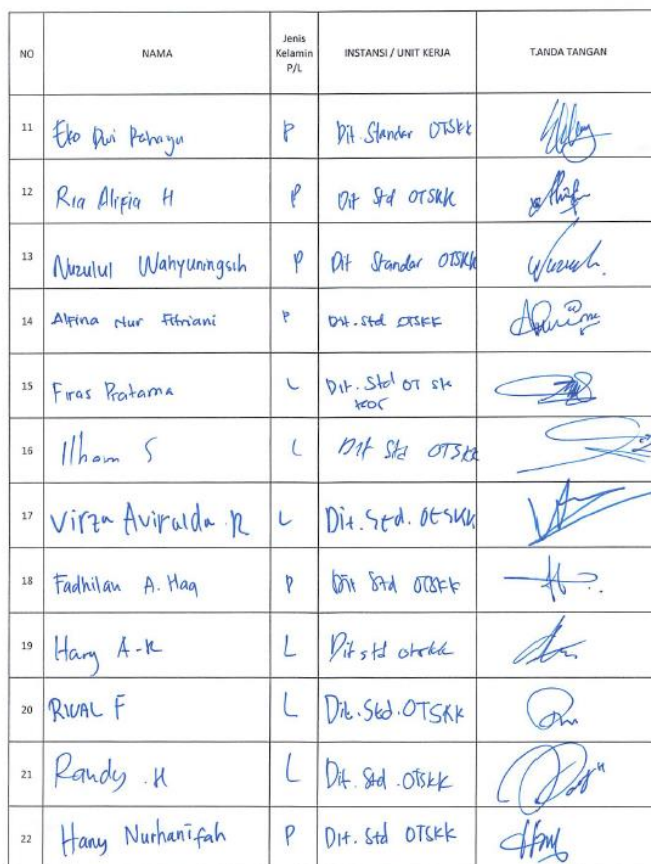 NO NAMA Jenis Kelamin P/L INSTANSI / UNIT KERJA T.ANDA TANGAN
11 Eko Dwi Rahayu P Dit. Standar OTSKK
12 Ria Alifia H P Dit Std OTSKK
13 Nuzulul Wahyuningsih P Dit Standar OTSKK
14 Alfina Nur Fitriani P Dit. Std OTSKK
15 Firas Pratama L Dit. Std OT SK
KOS
16 Ilham S L Dit Std OTSKK
17 Virza Aviralda R L Dit. Std. OTSKK
18 Fadhilah A. Haq P Dit Std OTSKK
19 Hary A-R L Dit std otskk
20 RIVAL F L Dit. Std. OTSKK
21 Randy .H L Dit. Std .OTSKK
22 Hany Nurhanifah P Dit. Std OTSKK